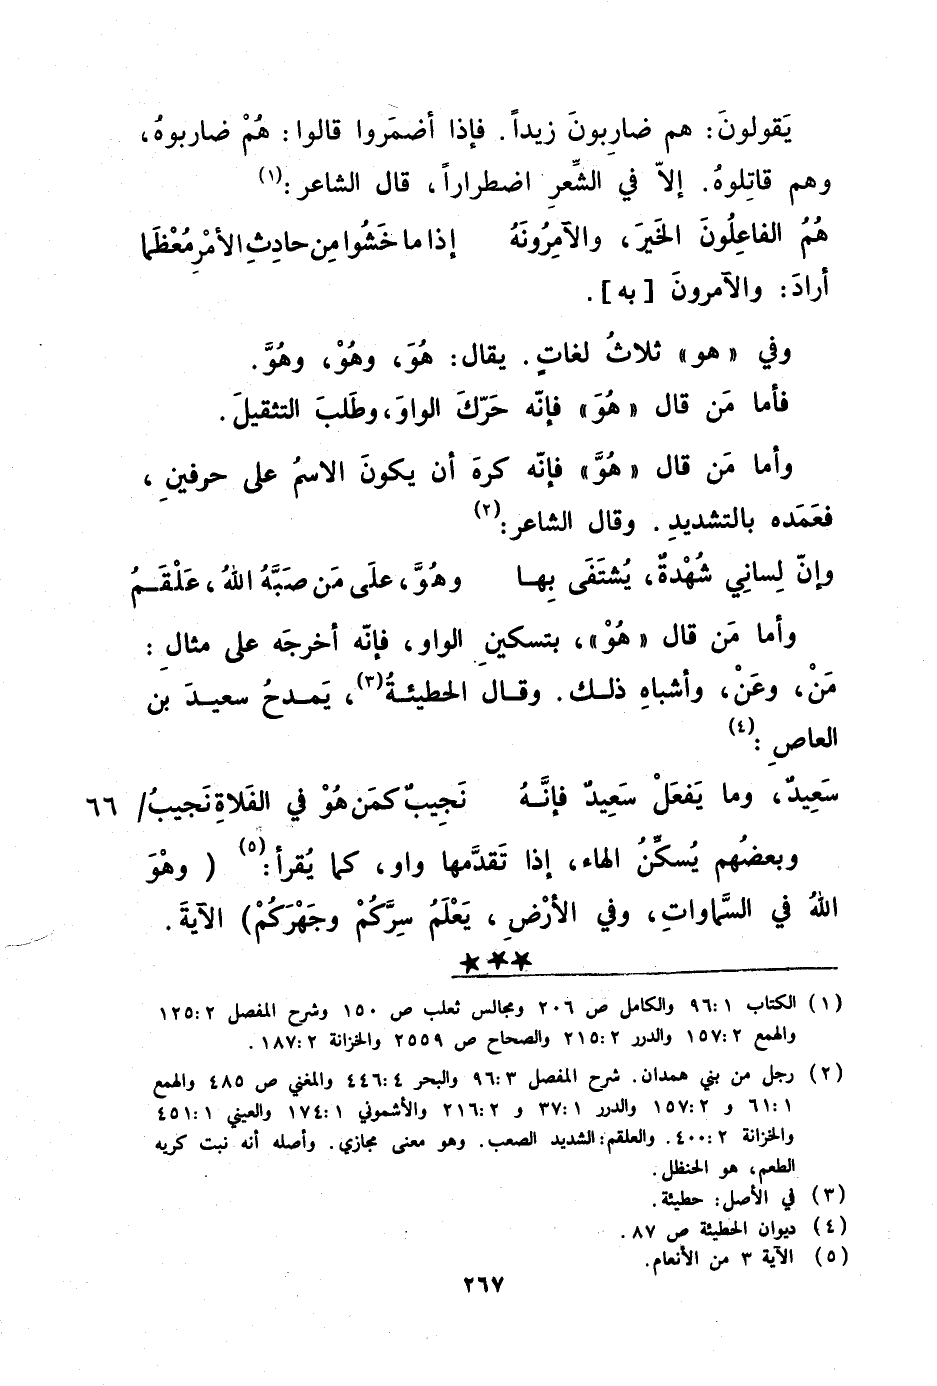 يَقولونَ: هم ضاربونَ زيداً. فإذا أضمَروا قالوا: هُمْ ضاربوهُ،
وهم قاتِلوهُ. إلاّ في الشِّعرِ اضطراراً، قال الشاعر:(١)
هُمُ الفاعِلُونَ الخَيرَ، والآمِرُونَهُ إذا ما خَشُوا مِن حادِثِ الأمْرِ مُعْظَما
أرادَ: والآمرونَ [به].
وفي «هو» ثلاثُ لغاتٍ. يقال: هُوَ، وهُوْ، وهُوَّ.
فأما مَن قال «هُوَ» فإنّه حَرّكَ الواوَ، وطَلبَ التثقيلَ.
وأما مَن قال «هُوَّ» فإنّه كرهَ أن يكونَ الاسمُ على حرفينِ،
فعَمَده بالتشديدِ. وقال الشاعر:(٢)
وإنّ لِسانِي شُهْدةٌ، يُشتَفَى بِهـا وهُوَّ، علَى مَن صَبَّهُ اللهُ، عَلْقَـمُ
وأما مَن قال «هُوْ»، بتسكينِ الواو، فإنّه أخرجَه على مثالِ:
مَنْ، وعَنْ، وأشباهِ ذلـك. وقـال الحطيئـةُ(٣)، يَمـدحُ سعيـدَ بن
العاصِ:(٤)
سَعِيدٌ، وما يَفعَلْ سَعِيدٌ فإنَّـهُ نَجِيبٌ كمَن هُوْ في الفَلاةِ نَجيبُ/ ٦٦
وبعضُهم يُسكِّنُ الهاء، إذا تَقدَّمها واو، كما يُقرأ:(٥) (وهْوَ
اللهُ في السَّماواتِ، وفي الأرْضِ، يَعْلَمُ سِرَّكُمْ وجَهْرَكُمْ) الآيةَ.
★★★
(١) الكتاب ١:٩٦ والكامل ص ٢٠٦ ومجالس ثعلب ص ١٥٠ وشرح المفصل ٢:١٢٥
والهمع ٢:١٥٧ والدرر ٢:٢١٥ والصحاح ص ٢٥٥٩ والخزانة ٢:١٨٧.
(٢) رجل من بني همدان. شرح المفصل ٣:٩٦ والبحر ٤:٤٤٦ والمغني ص ٤٨٥ والهمع
١:٦١ و ٢:١٥٧ والدرر ١:٣٧ و ٢:٢١٦ والأشموني ١:١٧٤ والعيني ١:٤٥١
والخزانة ٢:٤٠٠. والعلقم: الشديد الصعب. وهو معنى مجازي. وأصله أنه نبت كريه
الطعم، هو الحنظل.
(٣) في الأصل: حطيئة.
(٤) ديوان الحطيئة ص ٨٧.
(٥) الآية ٣ من الأنعام.
٢٦٧